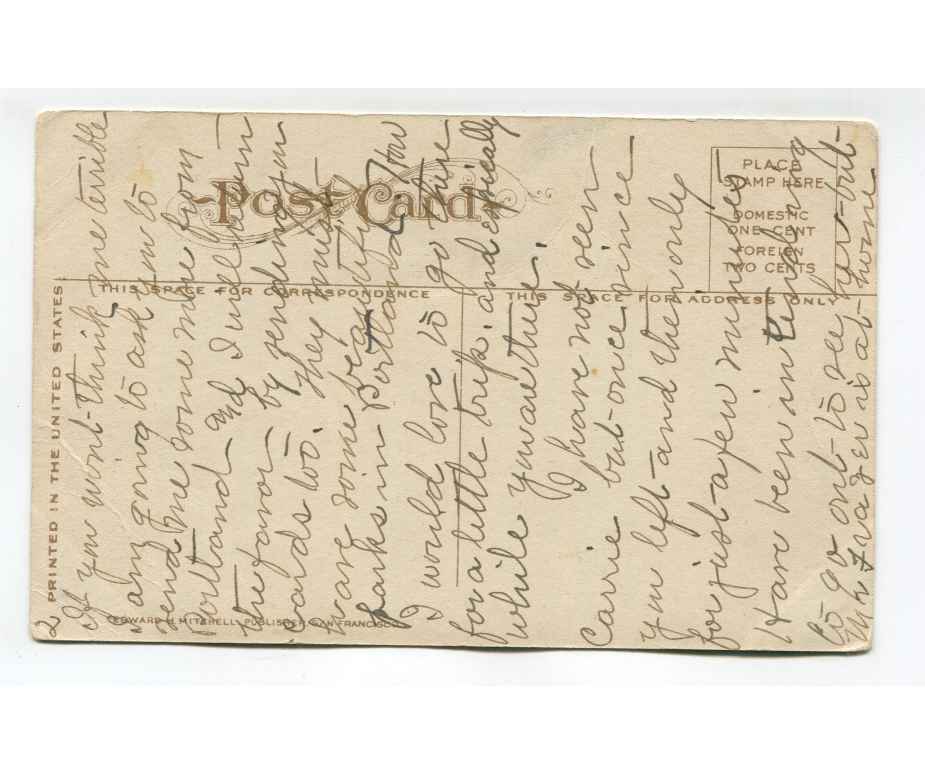 PRINTED IN THE UNITED STATES
Post Card
THIS SPACE FOR CORRESPONDENCE
THIS SPACE FOR ADDRESS ONLY
PLACE
STAMP HERE
DOMESTIC
ONE CENT
FOREIGN
TWO CENTS
EDWARD H. MITCHELL, PUBLISHER, SAN FRANCISCO
2
If you wont think me terrible
I am going to ask you to
send me some more from
Portland and I will return
the favor by sending you
cards too. They must
have some beautiful
parks in Portland. How
I would love to go there
for a little trip and especially
while you are there.
I have not seen
Carrie but once since
you left and then only
for just a few minutes
Have been intending
to go out to see her but
Mr Frazer is at home